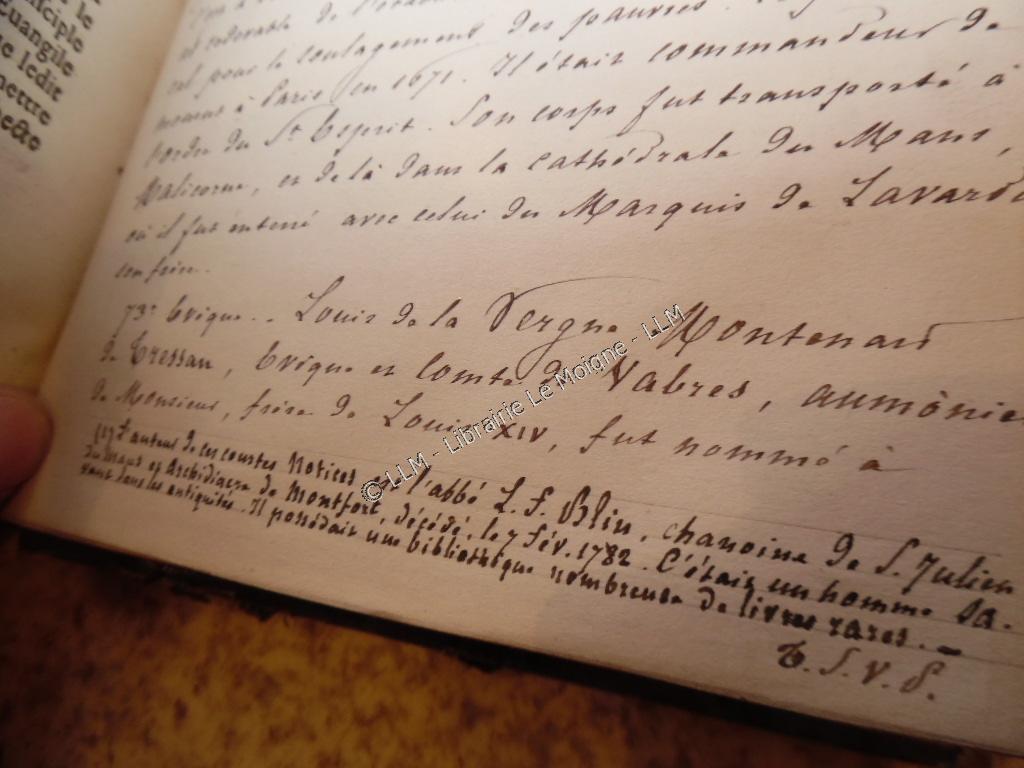 le
nsciple
Euangile
ue ledit
mettre
de l'
est redevable
et pour le soulagement des pauvres.
mourut à Paris en 1671. Il était commandeur de
l'ordre du St Esprit. Son corps fut transporté à
Malicorne, et de là dans la cathédrale du Mans,
où il fut enterré avec celui du Marquis de Lavardi
son frère.
73e Evêque. - Louis de la Vergne Montenard
de Tressan, Evêque et comte de Vabres, aumônie
de Monsieur, frère de Louis XIV, fut nommé à
(1) L'auteur de ces courtes Notices est l'abbé L. F. Blin, chanoine de S. Julien
du Mans et Archidiacre de Montfort, décédé, le 7 fév. 1782. C'était un homme sa-
vant dans les antiquités. Il possédait une bibliothèque nombreuse de livres rares. -
T. S. V. P.
© LLM - Librairie Le Moigne - LLM